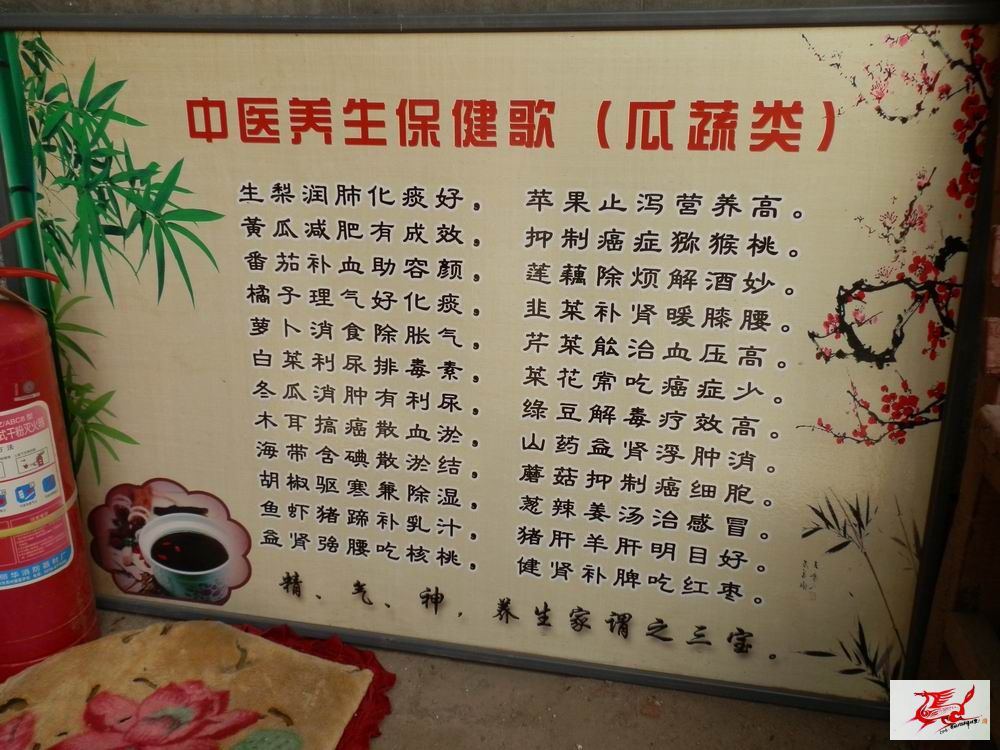 中医养生保健歌（瓜蔬类）
生梨润肺化痰好，苹果止泻营养高。
黄瓜减肥有成效，抑制癌症猕猴桃。
番茄补血助容颜，莲藕除烦解酒妙。
橘子理气好化痰，韭菜补肾暖膝腰。
萝卜消食除胀气，芹菜能治血压高。
白菜利尿排毒素，菜花常吃癌症少。
冬瓜消肿有利尿，绿豆解毒疗效高。
木耳搞癌散血淤，山药益肾浮肿消。
海带含碘散淤结，蘑菇抑制癌细胞。
胡椒驱寒兼除湿，葱辣姜汤治感冒。
鱼虾猪蹄补乳汁，猪肝羊肝明目好。
益肾强腰吃核桃，健肾补脾吃红枣。
精、气、神，养生家谓之三宝。